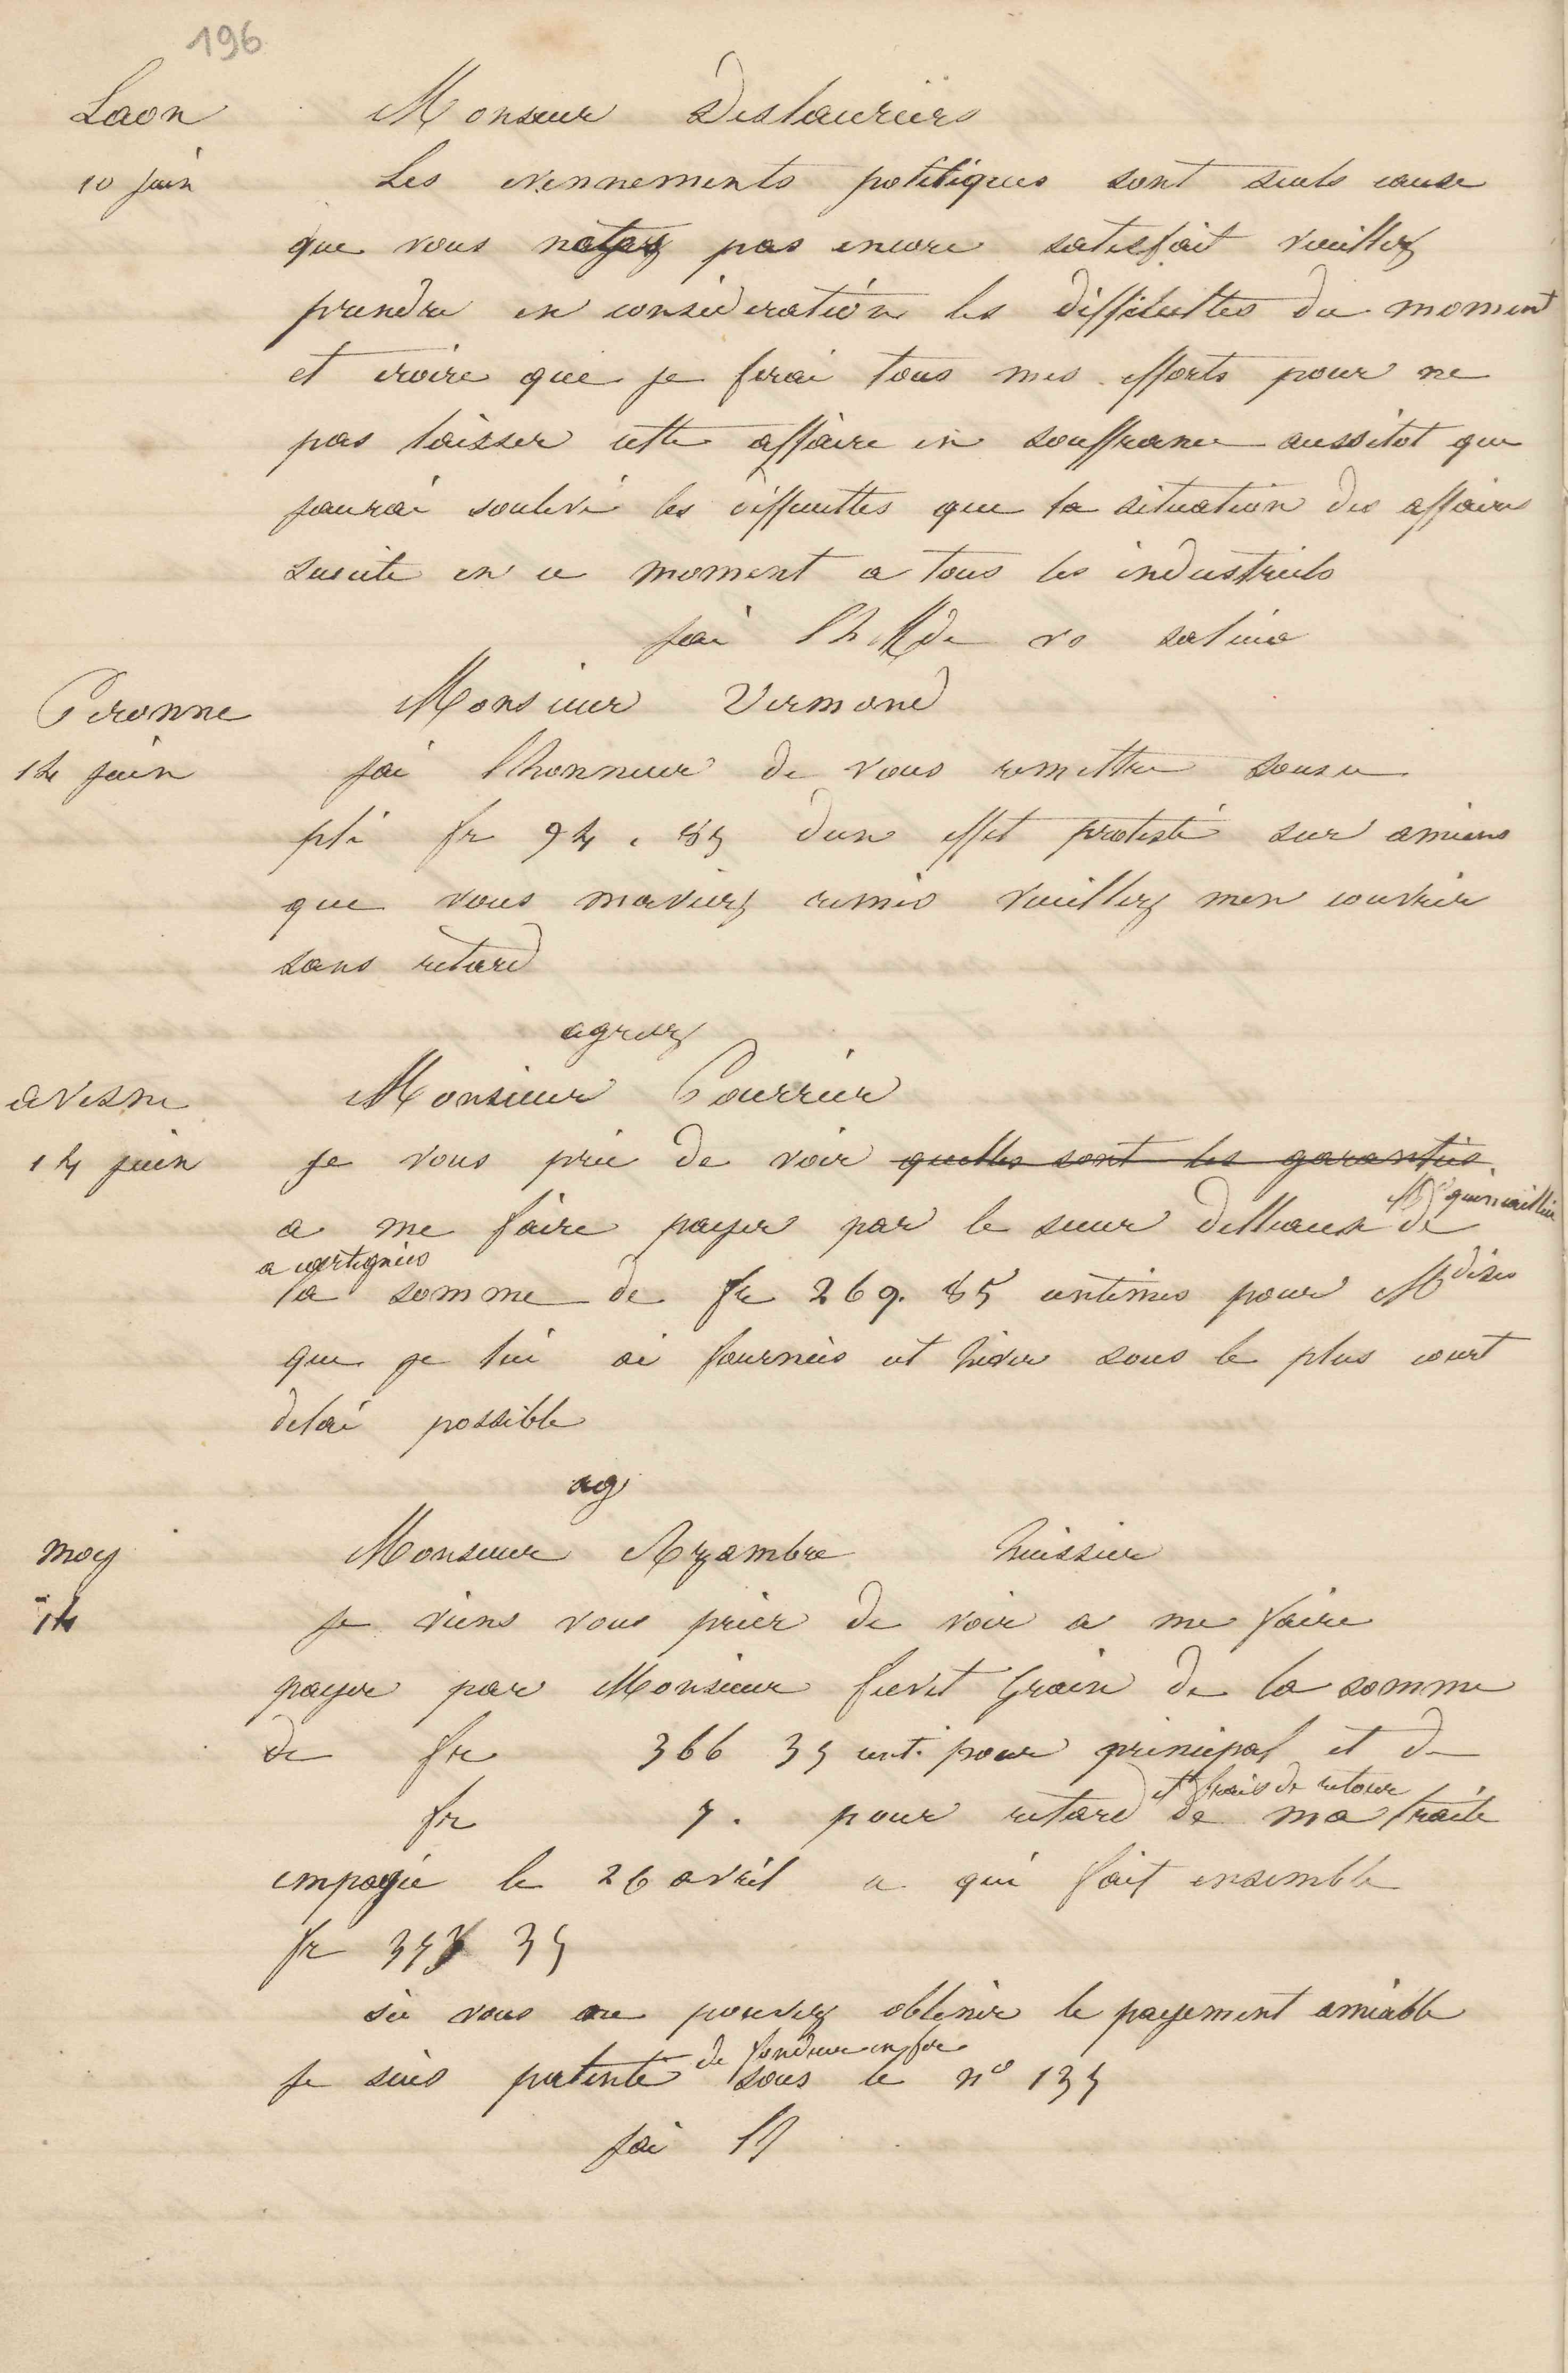 196
Laon
Monsieur Deslauriers
10 juin
Les evennements politiques sont seuls cause
que vous pas encore satisfait veuillez
prendre en consideration les difficultes du moment
et croire que je ferai tous mes efforts pour ne
pas laisser cette affaire en souffrance aussitot que
jaurai soulevé les difficultes que la situation des affaires
suscite en ce moment a tous les industriels
jai lh de vs saluer
Peronne
Monsieur Vermond
14 juin
jai lhonneur de vous remettre sous ce
pli fr 94. 85 dun effet protesté sur amiens
que vous maviez remis veuillez men couvrir
sans retard
agreez
avesne
Monsieur Pourrier
14 juin
je vous prie de voir quelles sont les garanties
a me faire payer par le sieur delhaux Md quincaillier de
a cartignies
la somme de fr 269. 85 centimes pour Mdises
que je lui ai fournies cet hiver sous le plus court
delai possible
ag
Moy
Monsieur Azambre huissier
14
je viens vous prier de voir a me faire
payer par Monsieur fievet Grain de la somme
de fr 366 35 cent. pour principal et de
fr 7. pour retard et frais de retour de ma traite
impayée le 26 avril ce qui fait ensemble
fr 373 35
si vous ne pouvez obtenir le payement amiable
je suis patenté de fondeur en fer sous le no 135
jai lh